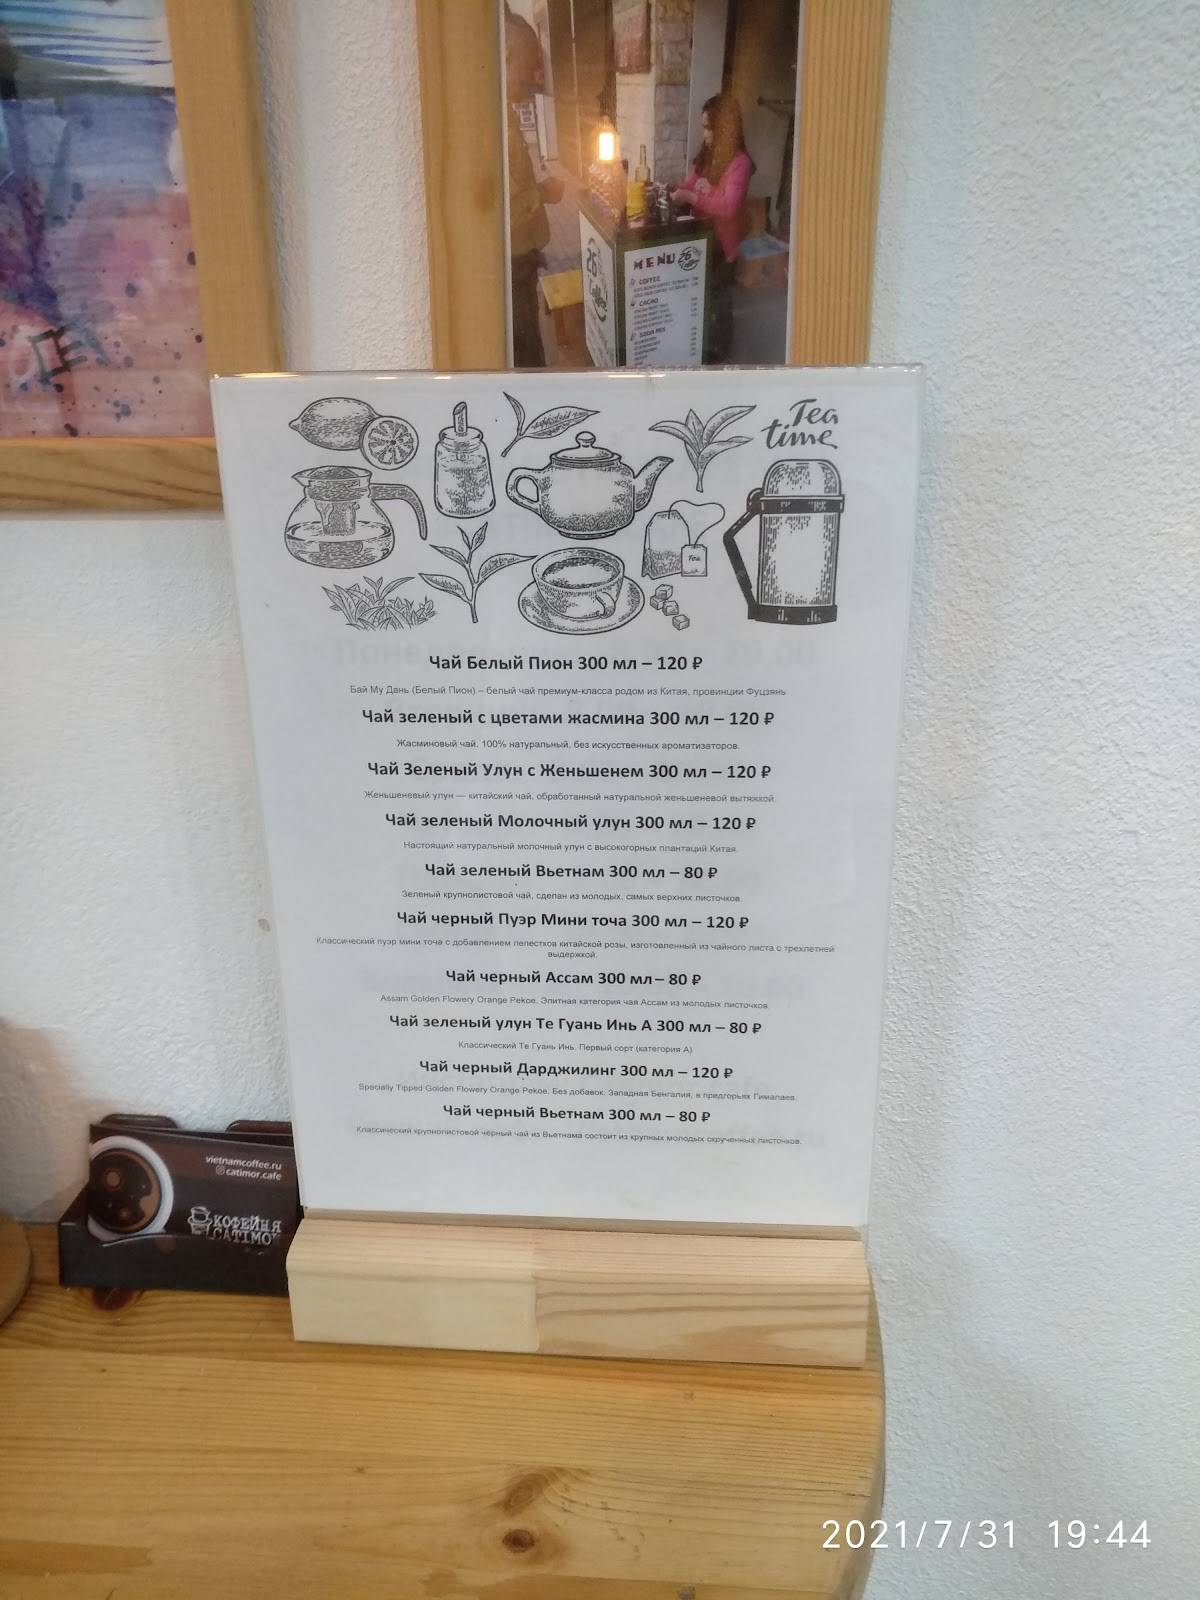 MENU
26
Coffee
COFFEE
CACAO
Tea
time
Tea
Чай Белый Пион 300 мл – 120 ₽
Бай Му Дань (Белый Пион) – белый чай премиум-класса родом из Китая, провинции Фуцзянь
Чай зеленый с цветами жасмина 300 мл – 120 ₽
Жасминовый чай. 100% натуральный, без искусственных ароматизаторов.
Чай Зеленый Улун с Женьшенем 300 мл – 120 ₽
Женьшеневый улун — китайский чай, обработанный натуральной женьшеневой вытяжкой.
Чай зеленый Молочный улун 300 мл – 120 ₽
Настоящий натуральный молочный улун с высокогорных плантаций Китая.
Чай зеленый Вьетнам 300 мл – 80 ₽
Зеленый крупнолистовой чай, сделан из молодых, самых верхних листочков.
Чай черный Пуэр Мини точа 300 мл – 120 ₽
Классический пуэр мини точа с добавлением лепестков китайской розы, изготовленный из чайного листа с трехлетней
выдержкой.
Чай черный Ассам 300 мл – 80 ₽
Assam Golden Flowery Orange Pekoe. Элитная категория чая Ассам из молодых листочков.
Чай зеленый улун Те Гуань Инь А 300 мл – 80 ₽
Классический Те Гуань Инь. Первый сорт (категория А)
Чай черный Дарджилинг 300 мл – 120 ₽
Specially Tipped Golden Flowery Orange Pekoe. Без добавок. Западная Бенгалия, в предгорьях Гималаев.
Чай черный Вьетнам 300 мл – 80 ₽
Классический крупнолистовой черный чай из Вьетнама состоит из крупных молодых скрученных листочков.
vietnamcoffee.ru
catimor.cafe
КОФЕЙНЯ
CATIMOR
2021/7/31 19:44